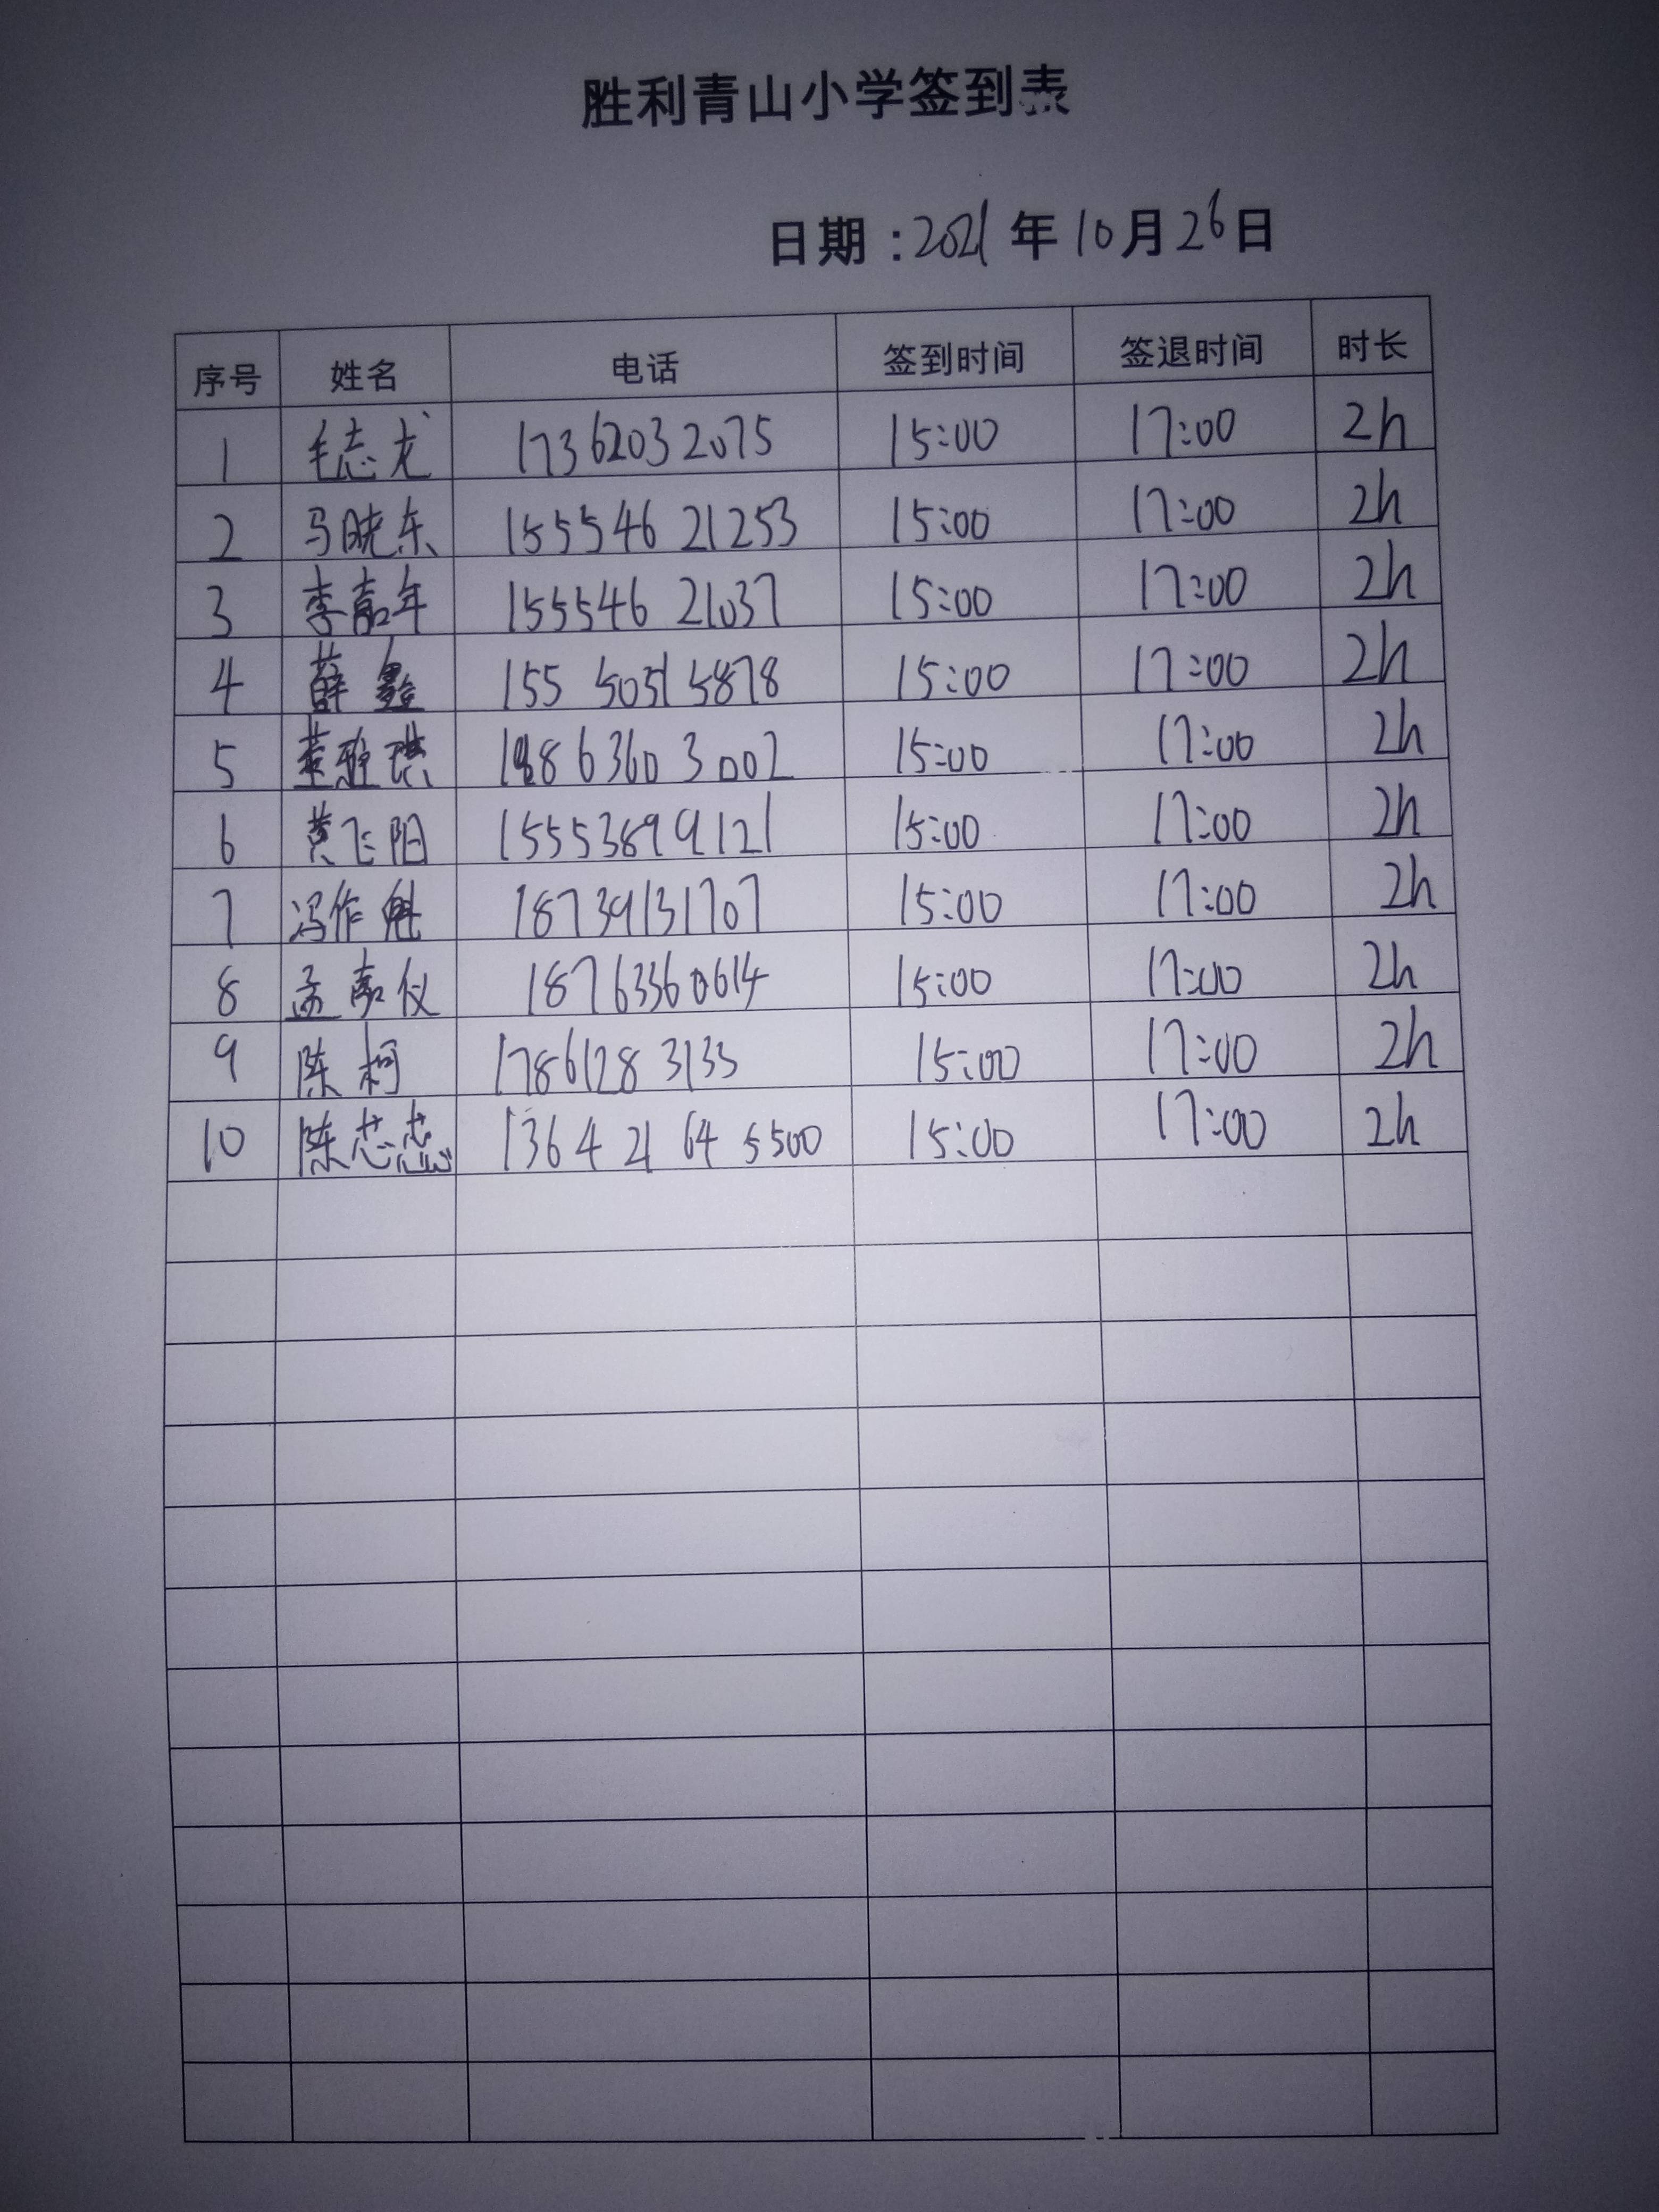 胜利青山小学签到表
日期：2021年10月26日
序号 姓名 电话 签到时间 签退时间 时长
1 毛志龙 17362032075 15:00 17:00 2h
2 马晓东 15554621253 15:00 17:00 2h
3 李嘉年 15554621037 15:00 17:00 2h
4 薛鑫 15550515878 15:00 17:00 2h
5 董雅琪 15:00 17:00 2h
6 黄飞阳 15553899121 15:00 17:00 2h
7 冯作魁 18739131707 15:00 17:00 2h
8 孟嘉仪 18763360614 15:00 17:00 2h
9 陈柯 17861283133 15:00 17:00 2h
10 陈芯蕊 1364 21 64 5500 15:00 17:00 2h